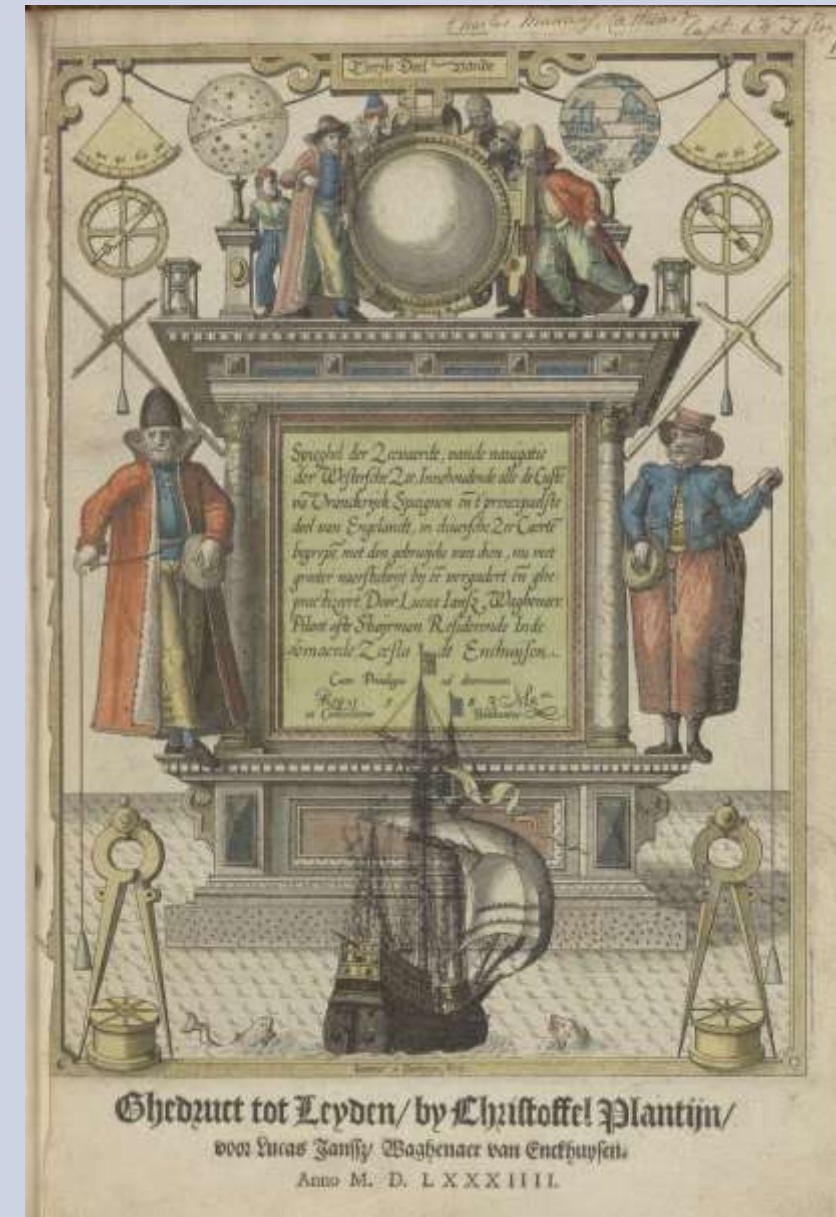 Charles
Capt.
Eerste Deel vande
Spieghel der Zeevaerdt, vande navigatie
der Westersche Zee, Innehoudende alle de Custē
vā Vranckrijck Spaignen eñ t principaelste
deel van Engelandt, in diversche Zee Caertē
begrepē, met den gebruijcke van dien, nu met
grooter naersticheijt bij eē vergadert eñ ghe
practizeert. Door Lucas Iansz Waghenaer
Piloot ofte Stuijrman Residerende Inde
vermaerde Zeestadt Enchuijsen.
Cum Privilegio ad decennium
Ghedruct tot Leyden/ by Christoffel Plantijn/
voor Lucas Jansz/ Waghenaer van Enckhuysen.
Anno M. D. LXXXIIII.